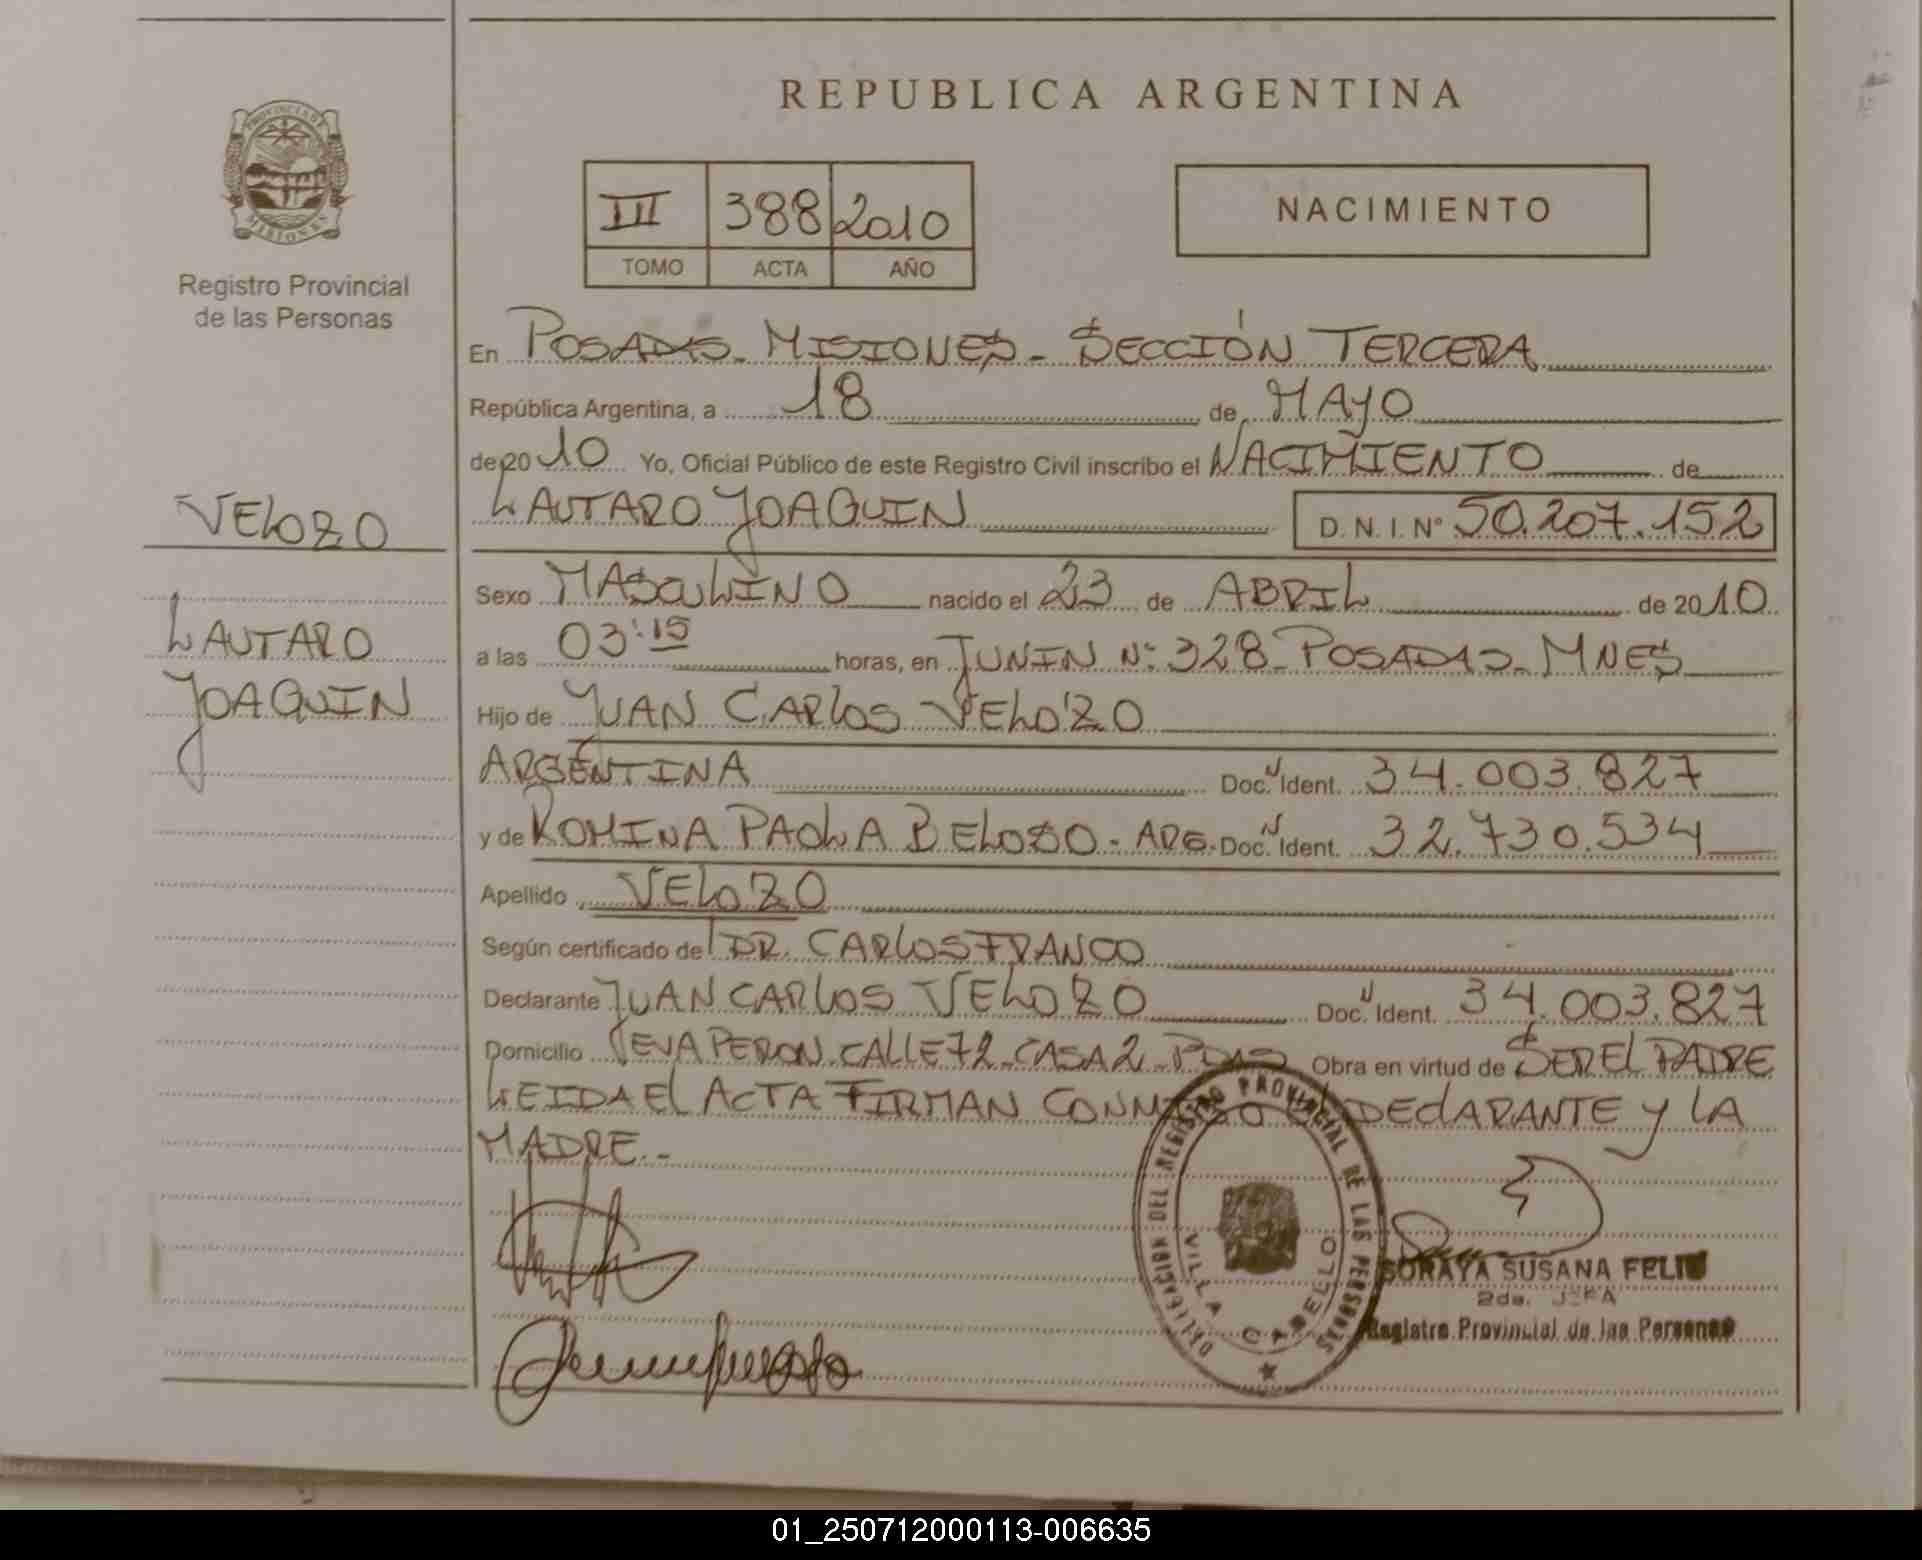 REPUBLICA ARGENTINA
PROVINCIA DE
MISIONES
Registro Provincial
de las Personas
III 388 2010
TOMO ACTA AÑO
NACIMIENTO
VELOZO
LAUTARO
JOAQUIN
En POSADAS - MISIONES - SECCIÓN TERCERA
República Argentina, a 18 de MAYO
de 2010 Yo, Oficial Público de este Registro Civil inscribo el NACIMIENTO de
LAUTARO JOAQUIN D.N.I. Nº 50.207.152
Sexo MASCULINO nacido el 23 de ABRIL de 2010
a las 03:15 horas, en JUNIN Nº 328 - POSADAS - MNES
Hijo de JUAN CARLOS VELOZO
ARGENTINA Doc. Ident. 34.003.827
y de ROMINA PAOLA BELOSO - ARG. Doc. Ident. 32.730.534
Apellido VELOZO
Según certificado de DR. CARLOS FRANCO
Declarante JUAN CARLOS VELOZO Doc. Ident. 34.003.827
Domicilio EVA PERON CALLE 72 CASA 2 - PDAS Obra en virtud de SER EL PADRE
LEIDA EL ACTA FIRMAN CONMIGO EL DECLARANTE Y LA
MADRE.-
DELEGACION DEL REGISTRO PROVINCIAL DE LAS PERSONAS
VILLA CABELLO
SORAYA SUSANA FELIU
2da. JEFA
Registro Provincial de las Personas
01_250712000113-006635